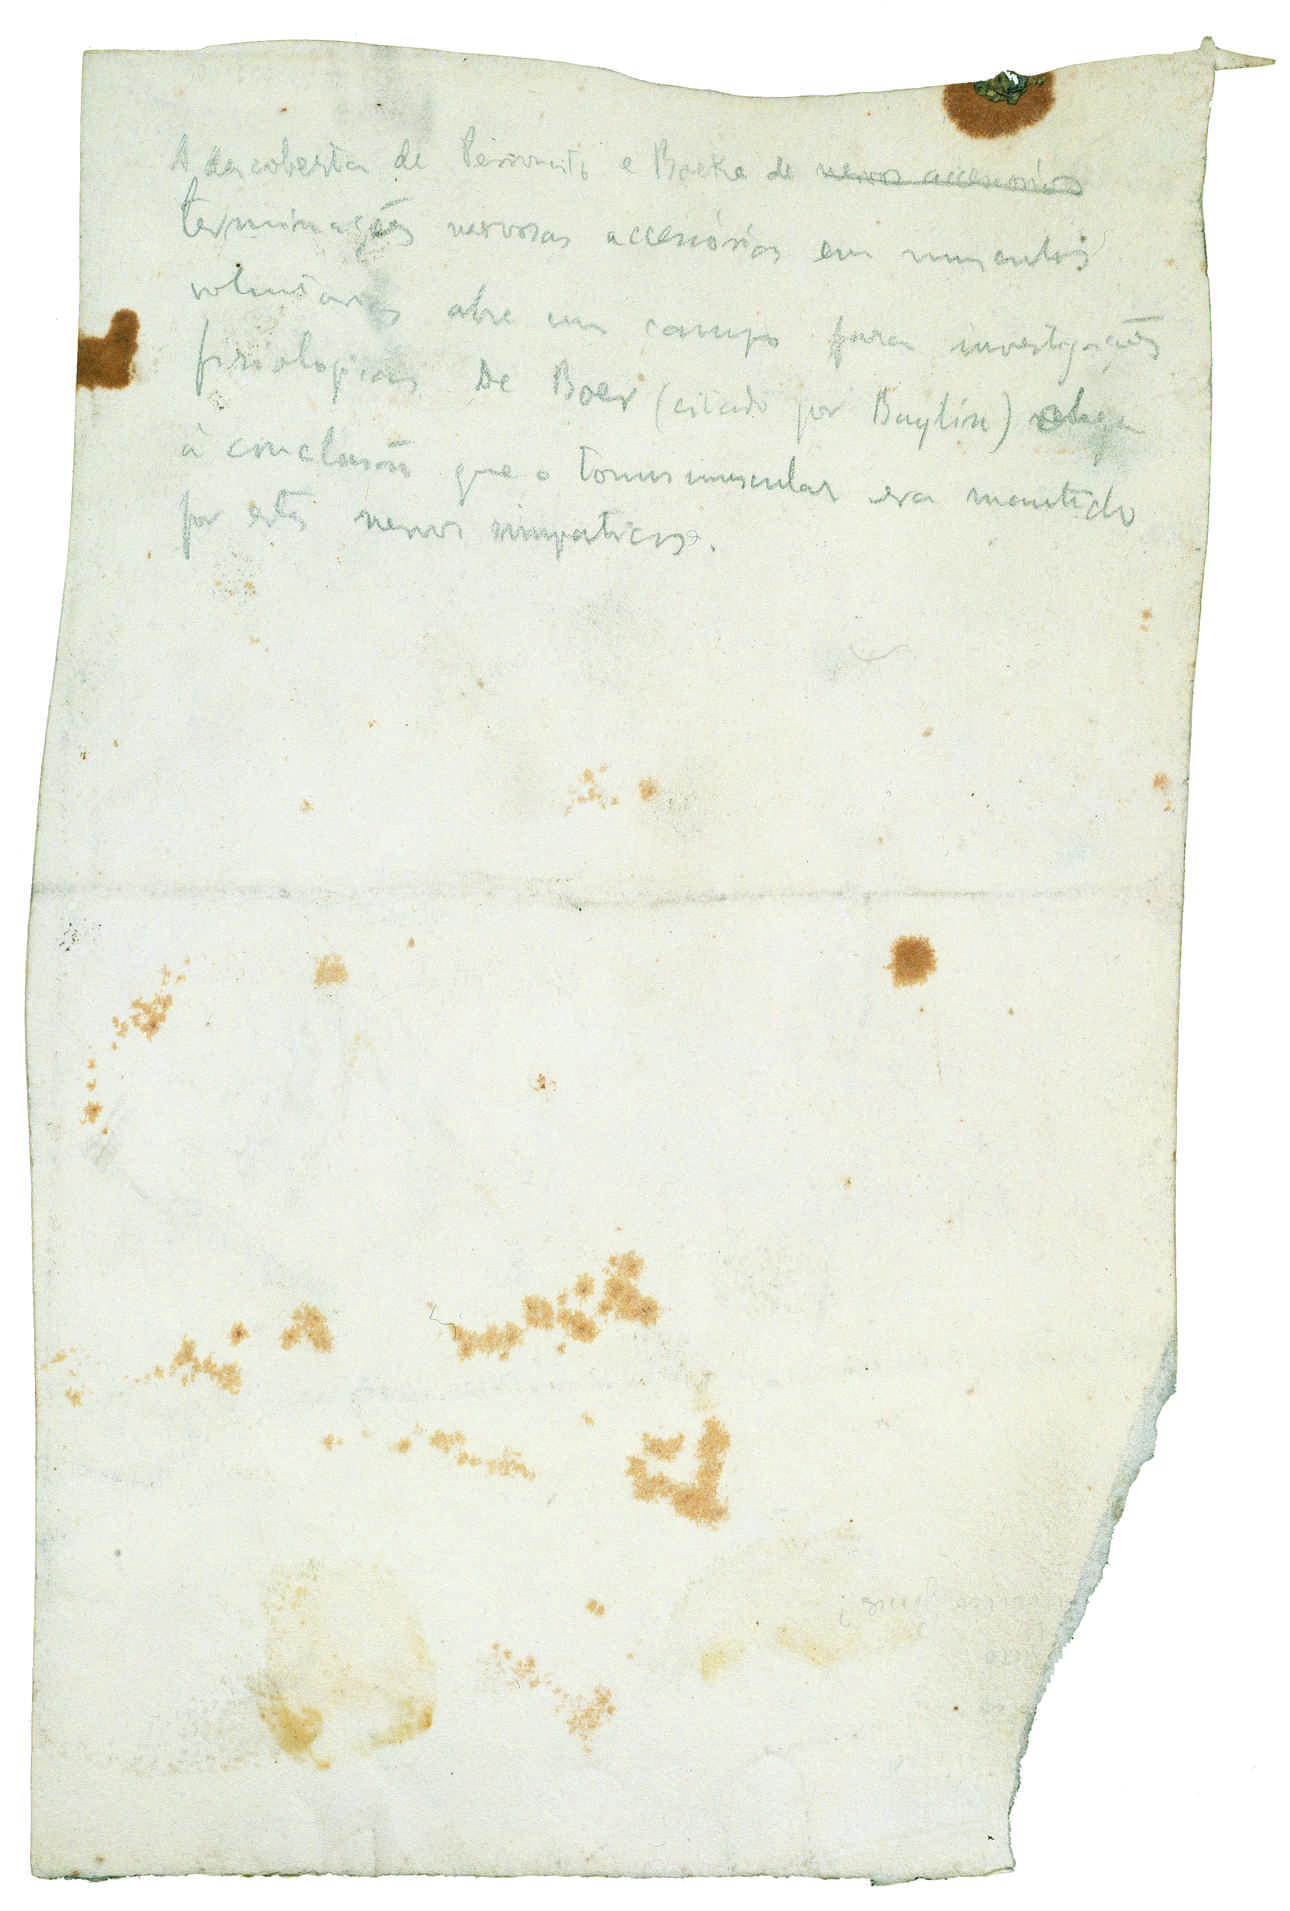 A descoberta de Perroncito e Boeke de nervos accessórios
terminações nervosas accessórias em musculos
voluntarios abre um campo para investigações
fisiologicas De Boer (citado por Baylis) chega
á conclusão que o tonus muscular era mantido
por estes nervos simpaticos.